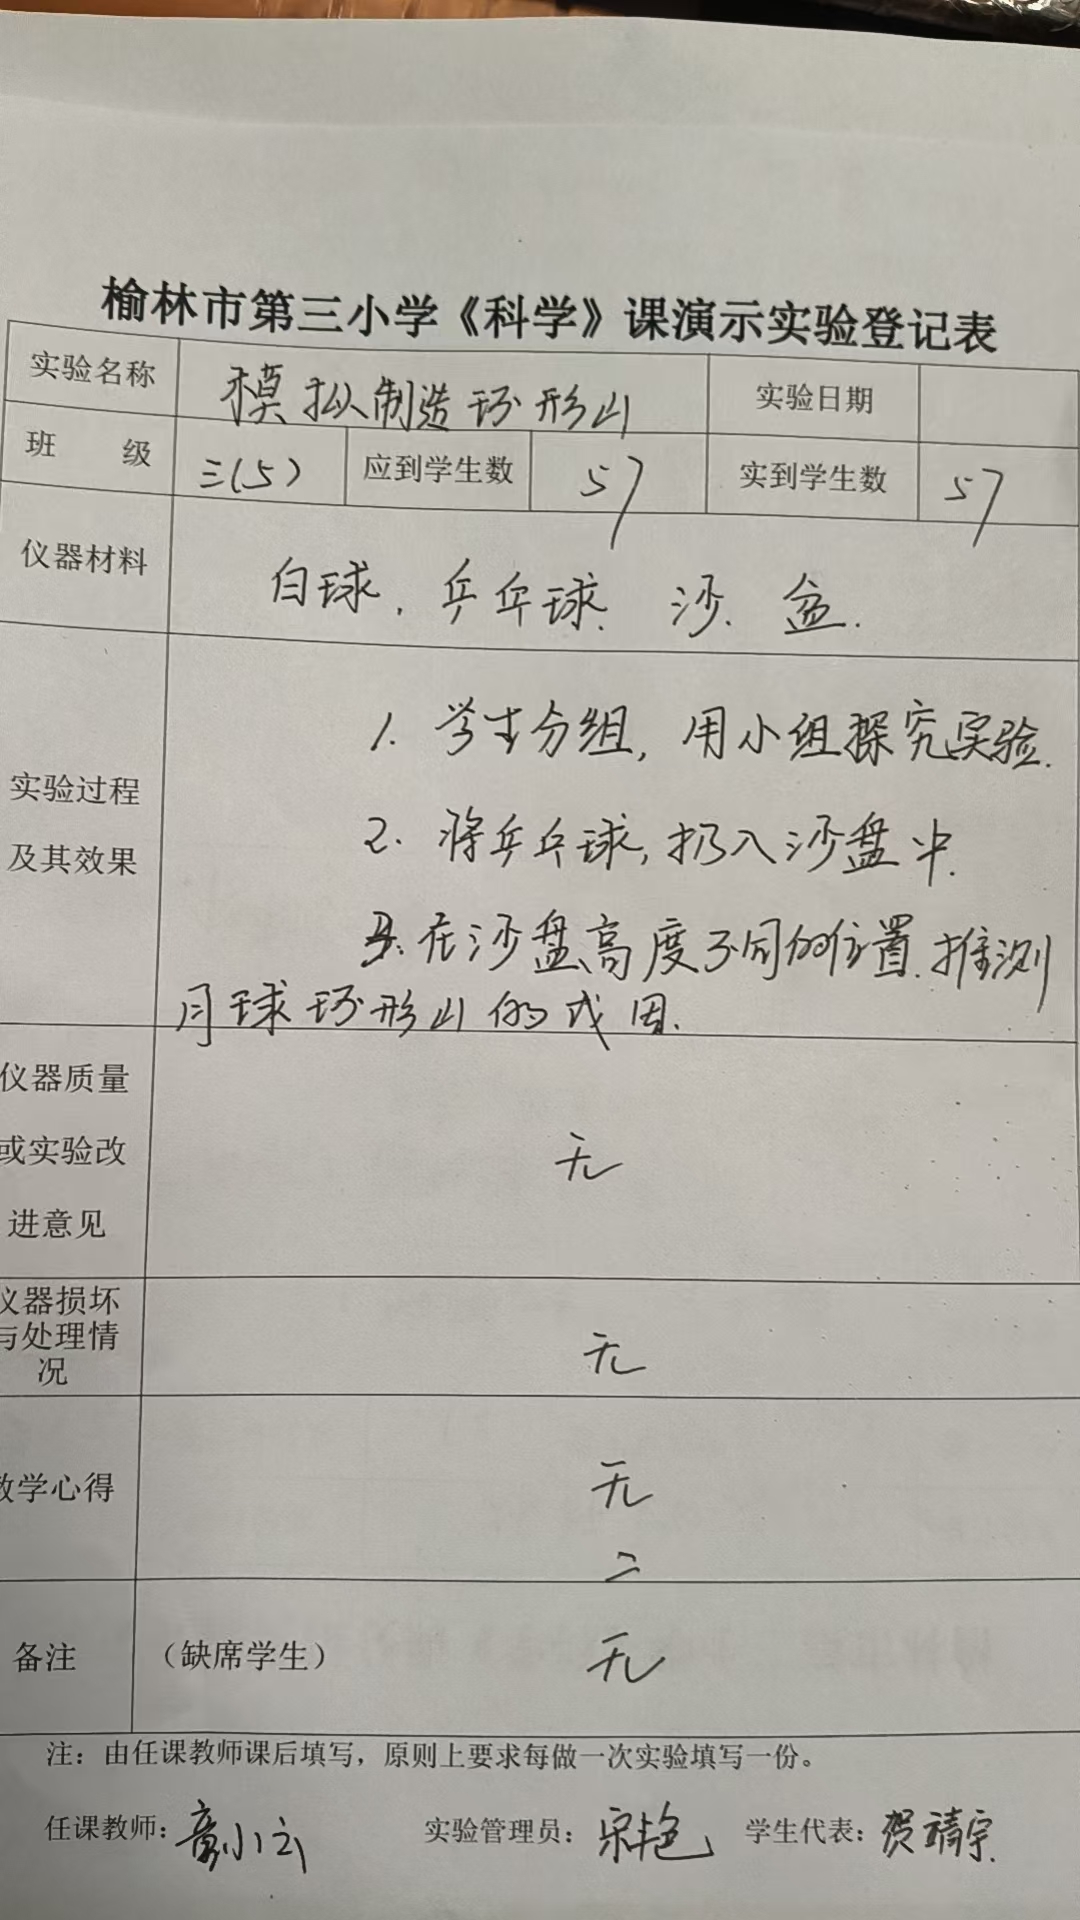 榆林市第三小学《科学》课演示实验登记表
实验名称 模拟制造环形山 实验日期
班 级 三(5) 应到学生数 57 实到学生数 57
仪器材料 白球, 乒乓球. 沙. 盆.
1. 学生分组, 用小组探究实验.
实验过程
2. 将乒乓球, 扔入沙盘中.
及其效果
3. 在沙盘高度不同的位置. 推测
月球环形山的成因.
仪器质量
或实验改 无
进意见
仪器损坏
与处理情 无
况
教学心得 无
备注 (缺席学生) 无
注：由任课教师课后填写，原则上要求每做一次实验填写一份。
任课教师: 小云 实验管理员: 宋艳 学生代表: 贺靖宗